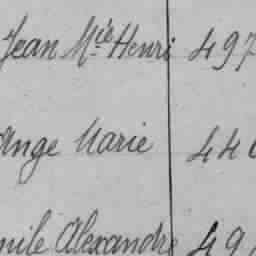 Jean Mie Henri 497
Ange Marie 44
Alexandre 49